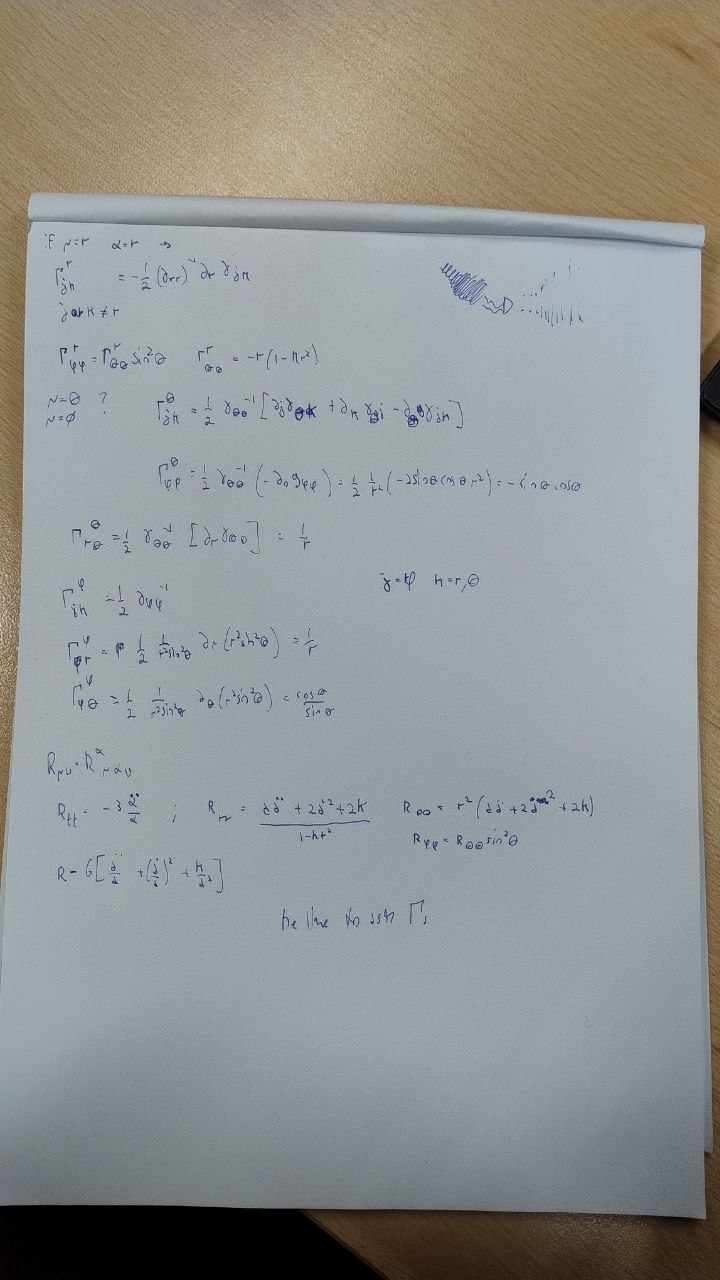 if μ=r α=r →
Γ^r_{jk} = -1/2 (γ_{rr})^{-1} ∂_r γ_{jk}
j or k ≠ r
Γ^r_{φφ} = Γ^r_{θθ} sin²θ Γ^r_{θθ} = -r(1-kr²)
μ=θ ?
μ=φ
Γ^θ_{jk} = 1/2 γ_{θθ}^{-1} [∂_j γ_{θk} + ∂_k γ_{θj} - ∂_θ γ_{jk}]
Γ^θ_{φφ} = 1/2 γ_{θθ}^{-1} (-∂_θ g_{φφ}) = 1/2 1/r² (-2sinθ cosθ r²) = -sinθ cosθ
Γ^θ_{rθ} = 1/2 γ_{θθ}^{-1} [∂_r γ_{θθ}] = 1/r
Γ^φ_{jk} = 1/2 γ_{φφ}^{-1} j=φ k=r,θ
Γ^φ_{φr} = 1/2 1/(r²sin²θ) ∂_r (r²sin²θ) = 1/r
Γ^φ_{φθ} = 1/2 1/(r²sin²θ) ∂_θ (r²sin²θ) = cosθ/sinθ
R_{μν} = R^α_{μαν}
R_{tt} = -3 ä/a ; R_{rr} = (aä + 2ȧ² + 2k)/(1-kr²) R_{θθ} = r² (aä + 2ȧ² + 2k)
R_{φφ} = R_{θθ} sin²θ
R = 6[ä/a + (ȧ/a)² + k/a²]
Γ